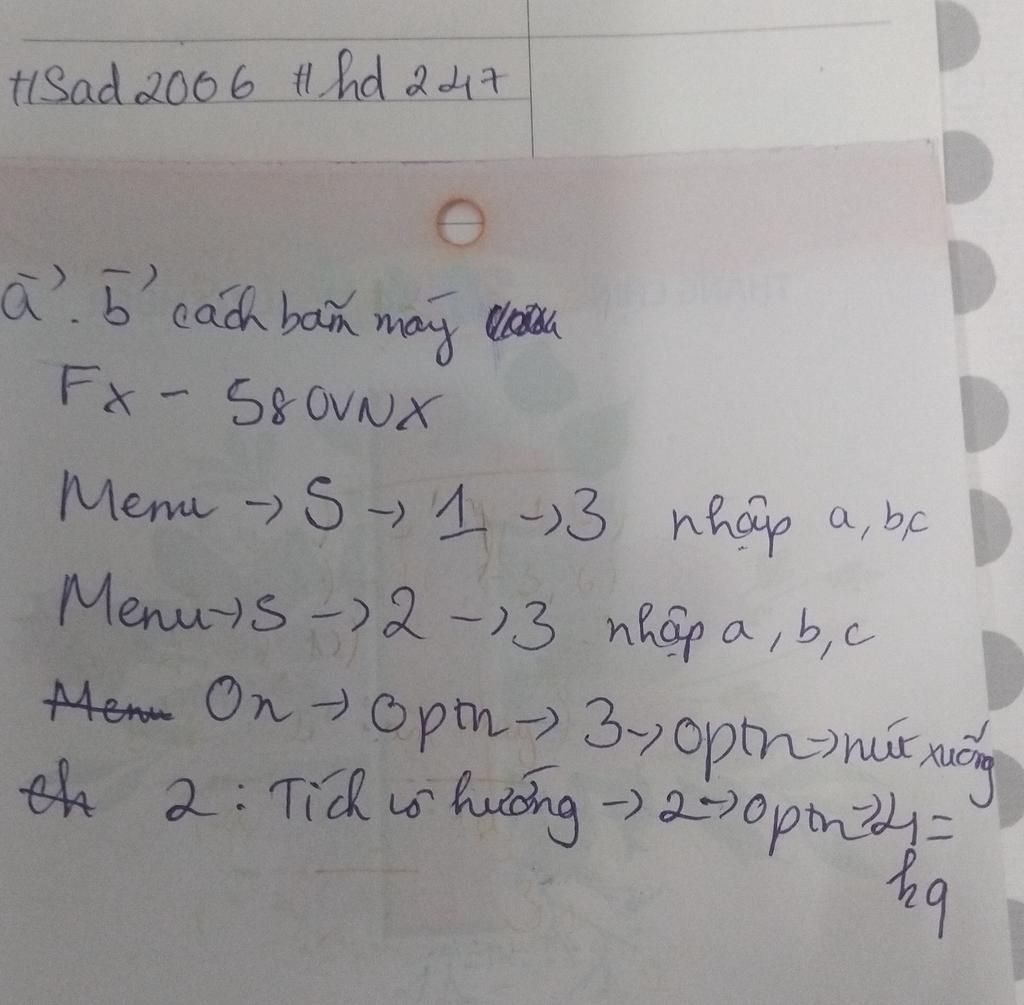 #Sad2006 #hd247
a⃗ . b⃗ cách bấm máy
Fx - 580VNX
Menu → 5 → 1 → 3 nhập a, b, c
Menu → 5 → 2 → 3 nhập a, b, c
Menu On → Optn → 3 → Optn → nút xuống
2 : Tích vô hướng → 2 → Optn → 4 =
kq